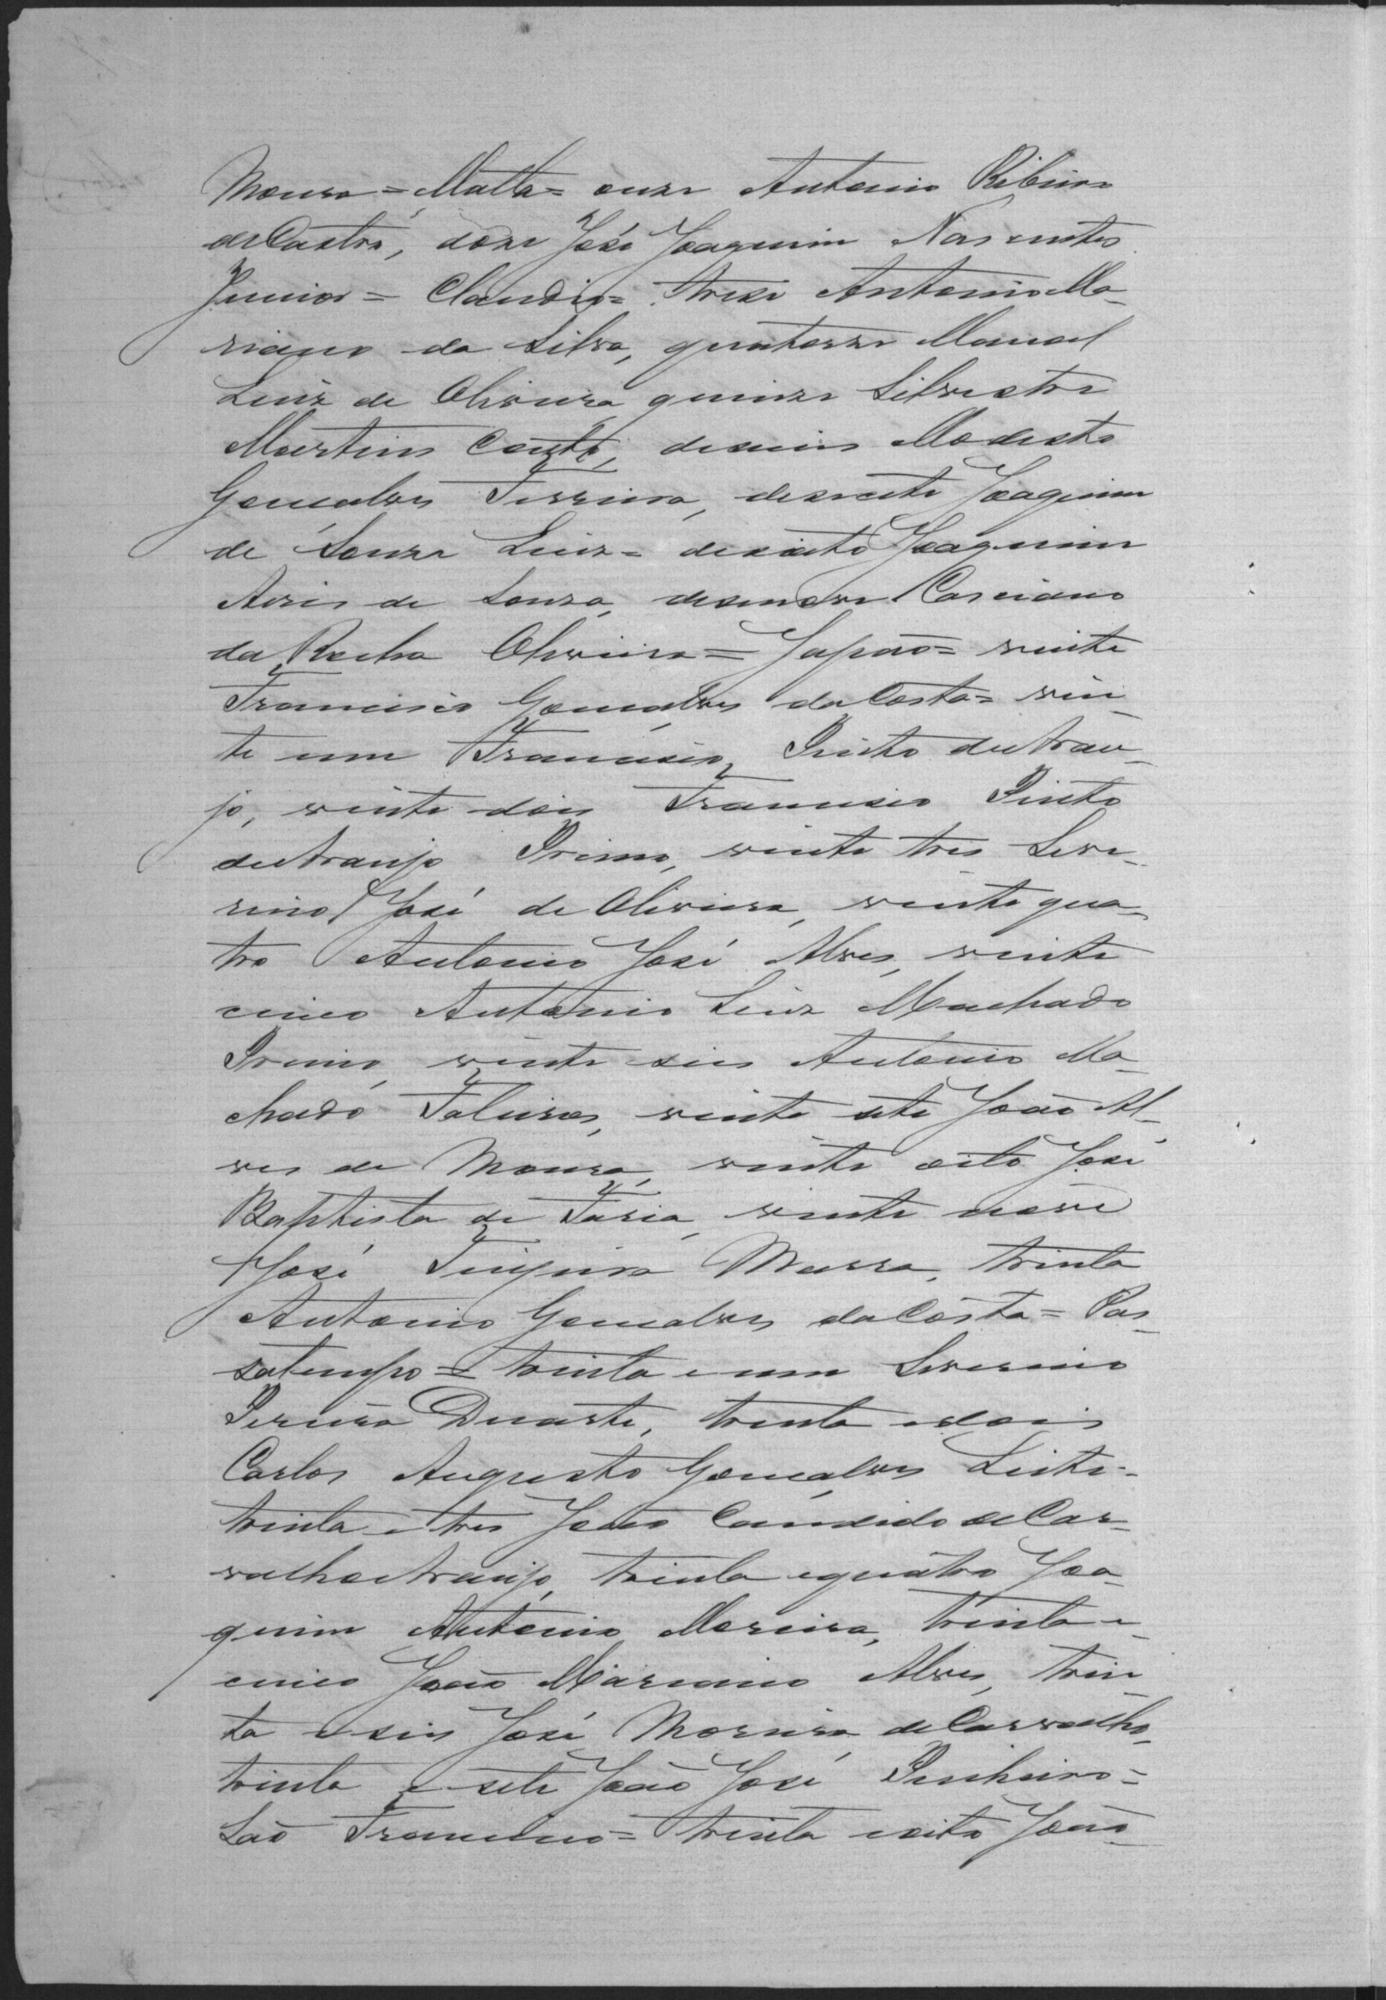 Moura = Matta = onze Antonio Ribeiro
de Castro, doze José Joaquim Nascentes
Junior = Claudio = treze Antonio Ma-
riano da Silva, quatorze Manoel
Luiz de Oliveira quinze Silvestre
Martins Couto, deseseis Modesto
Gonçalves Ferreira, desesete Joaquim
de Souza Luiz = desoito Joaquim
Aires de Souza, desenove Casciano
da Rocha Oliveira = Japão = vinte
Francisco Gonçalves da Costa = vin-
te um Francisco Pinto de Arau-
jo, vinte dois Francisco Pinto
de Araujo Primo, vinte tres Seve-
rino José de Oliveira, vinte qua-
tro Antonio José Alves, vinte
cinco Antonio Luiz Machado
Primo, vinte seis Antonio Ma-
chado, vinte sete João Al-
ves de Moura, vinte oito José
Baptista de Faria, vinte nove
José Teixeira, trinta
Antonio Gonçalves da Costa = Pas-
satempo = trinta e um Severino
Pereira Duarte, trinta e dois
Carlos Augusto Gonçalves Leite =
trinta e tres João Candido de Car-
valho Araujo, trinta e quatro Joa-
quim Antonio Moreira, trinta e
cinco João Marianno Alves, trin-
ta e seis José Moreira de Carvalho,
trinta e sete João José Pinheiro =
São Francisco = trinta e oito João